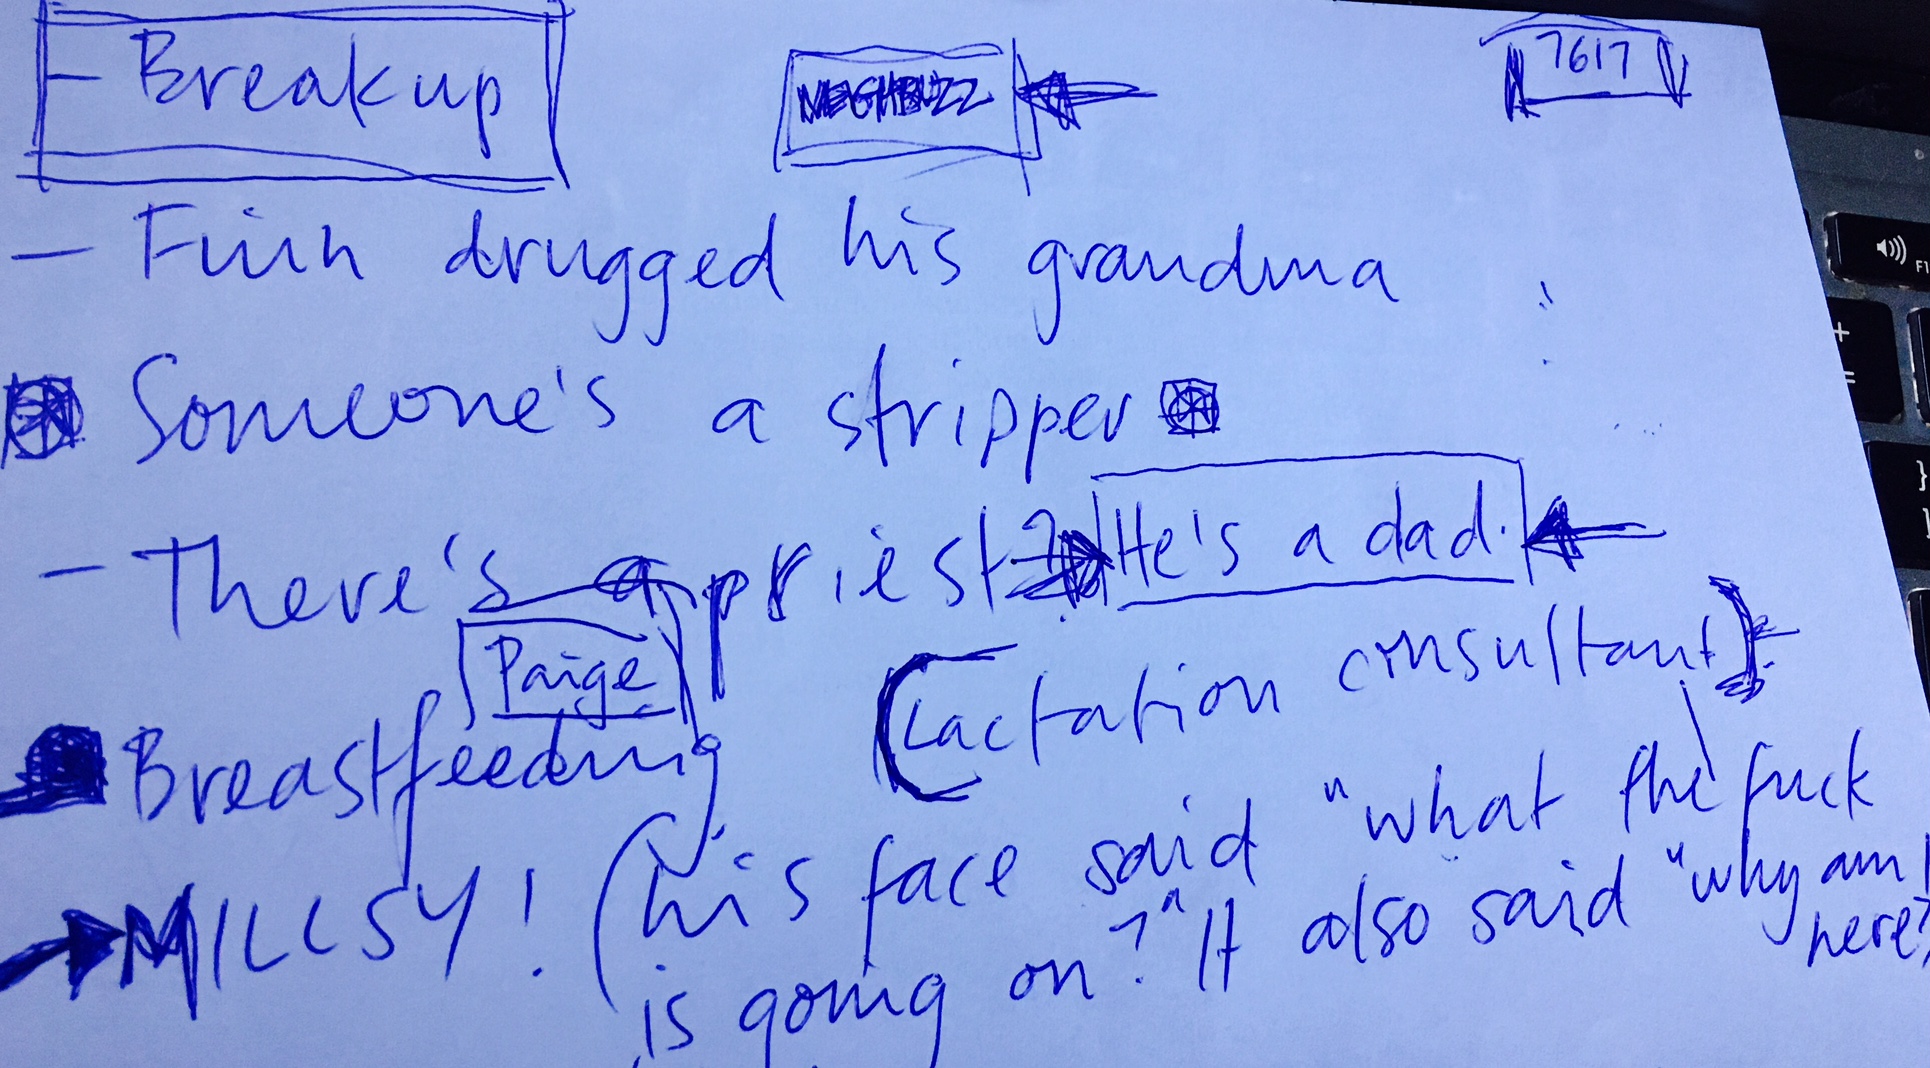 - Breakup
NEIGHBUZZ
7617
- Finn drugged his grandma
Someone's a stripper
- There's a priest? He's a dad.
Paige
Breastfeeding (Lactation consultant)
MILLSY! (his face said "what the fuck
is going on?" It also said "why am I
here?
F1
+
=
}
]